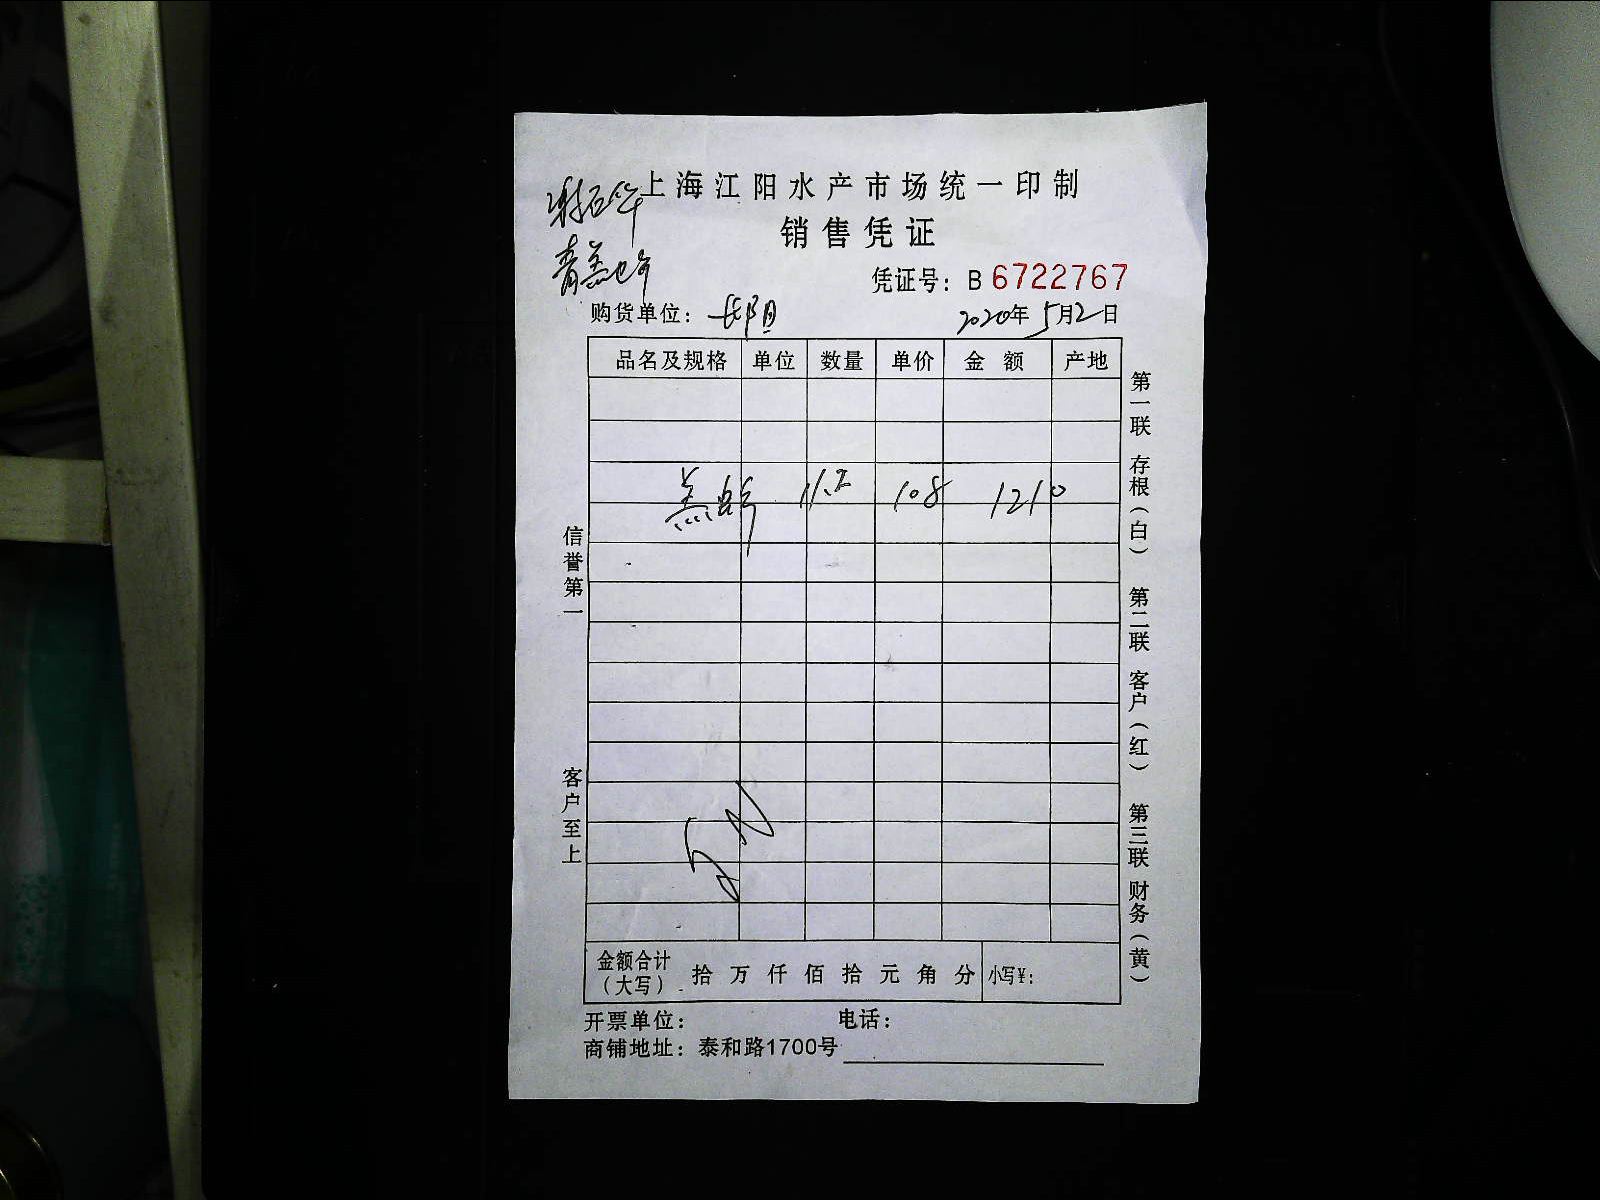 上海江阳水产市场统一印制
销售凭证
凭证号：B 6722767
购货单位：长阳
2020年5月2日
品名及规格 单位 数量 单价 金额 产地
108 1210
信誉第一
客户至上
第一联 存根（白） 第二联 客户（红） 第三联 财务（黄）
金额合计（大写） 拾 万 仟 佰 拾 元 角 分 小写¥：
开票单位： 电话：
商铺地址：泰和路1700号